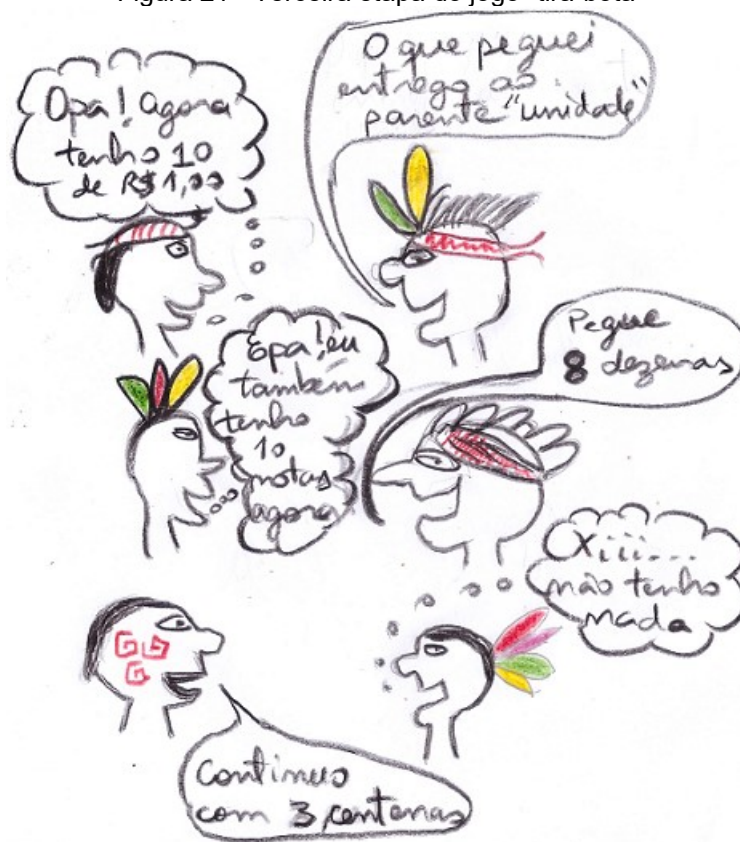 Opa! Agora
tenho 10
de R$ 1,00
O que peguei
entrego ao
parente "unidade"
Epa! eu
também
tenho
10
notas
agora
Pegue
8 dezenas
Xiii...
não tenho
nada
Continuo
com 3 centenas